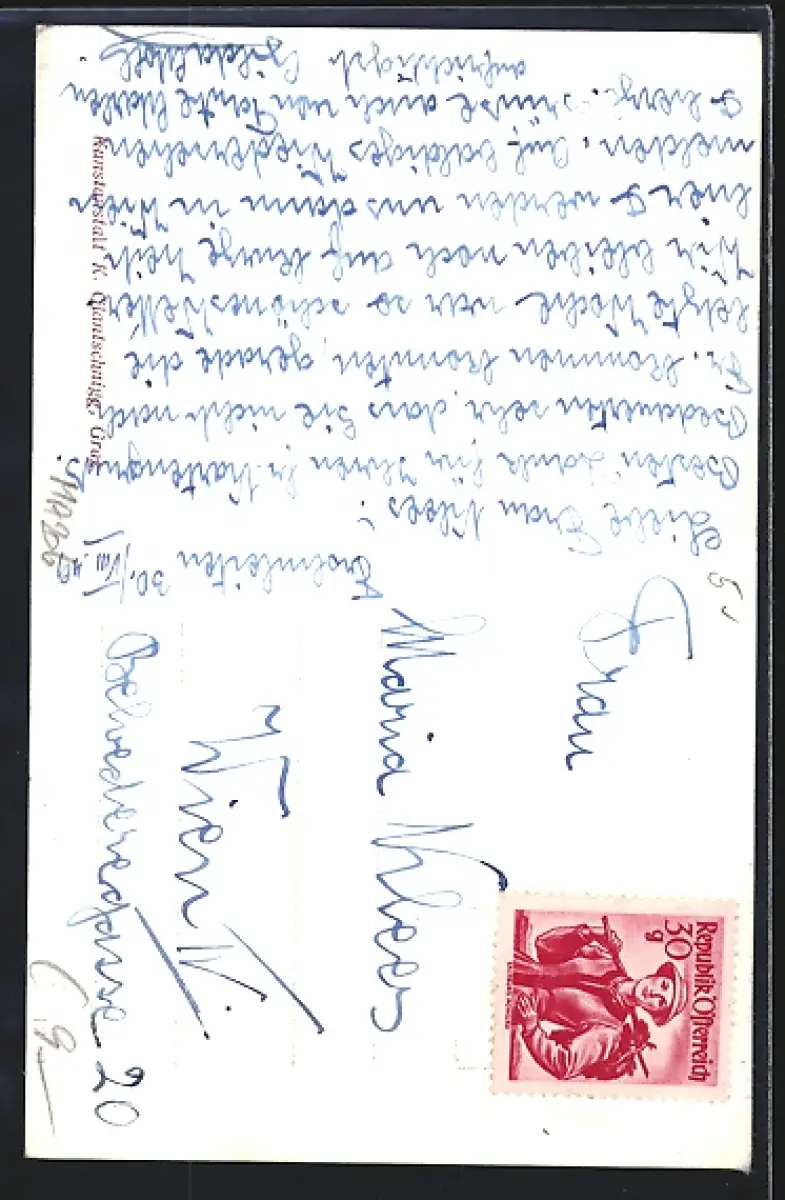 Frohnleiten 30./VIII.49
Liebe Frau Klees!
Besten Dank für Ihren lb. Kartengruß.
Bedauerten sehr, dass Sie nicht nach
Fr. kommen konnten, gerade die
letzte Woche war so schönes Wetter
Wir bleiben noch auf kurze Zeit
hier & werden uns dann in Wien
melden. Auf baldiges Wiedersehen
& herzl. Grüsse auch von Tante
aufrichtigst
Kunstanstalt K. Gantschnigg, Graz
Frau
Maria Klees
Wien IV.
Belvederegasse 20
Republik Österreich
30 g